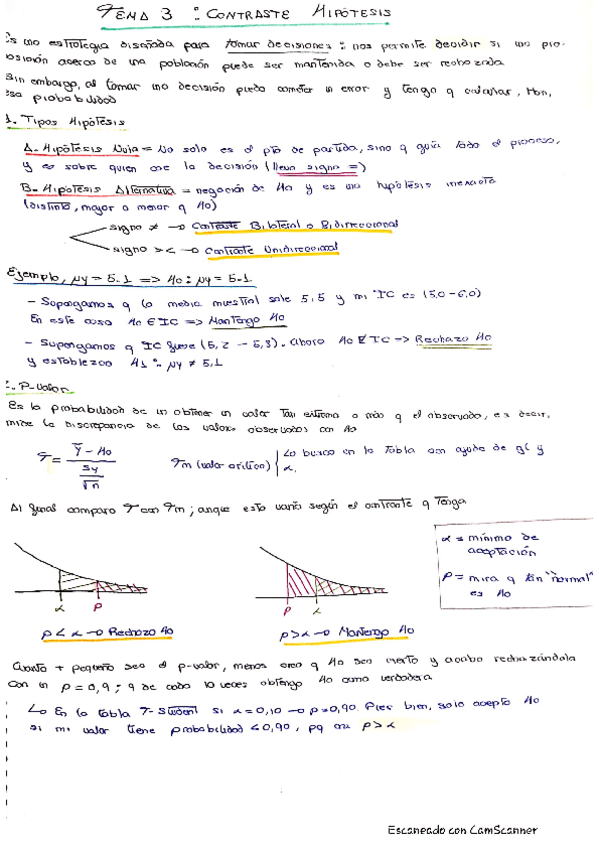 TEMA 3: CONTRASTE HIPÓTESIS
Es una estrategia diseñada para tomar decisiones: nos permite decidir si una pro-
posición acerca de una población puede ser mantenida o debe ser rechazada
Sin embargo, al tomar una decisión puedo cometer un error y tengo q calcular, tbn,
esa probabilidad
1. Tipos Hipótesis
A. Hipótesis Nula = No solo es el pto de partida, sino q guía todo el proceso,
y es sobre quien cae la decisión (lleva signo =)
B. Hipótesis Alternativa = negación de Ho y es una hipótesis inexacta
(distinta, mayor o menor q Ho)
signo ≠ → Contraste Bilateral o Bidireccional
signo >< → Contraste Unidireccional
Ejemplo, μy = 5.1 => Ho: μy = 5.1
- Supongamos q la media muestral sale 5,5 y mi IC es (5,0 - 6,0)
En este caso Ho ∈ IC => Mantengo Ho
- Supongamos q IC fuese (5,2 - 5,8). Ahora Ho ∉ IC => Rechazo Ho
y establezco H1: μy ≠ 5,1
2. P-valor
Es la probabilidad de un obtener un valor tan extremo o más q el observado, es decir,
mide la discrepancia de los valores observados con Ho
T = Ȳ - Ho / Sy / √n
Tm (valor crítico) Lo busco en la tabla con ayuda de gl y
α.
Al final comparo T con Tm; aunque esto varía según el contraste q tenga
α = mínimo de
aceptación
P = mira q tan "normal"
es Ho
α P
P α
p < α → Rechazo Ho
p > α → Mantengo Ho
Cuanto + pequeño sea el p-valor, menos creo q Ho sea cierto y acabo rechazándola
Con un p = 0,9; 9 de cada 10 veces obtengo Ho como verdadera
↳ En la tabla T-Student si α = 0,10 → p = 0,90. Pues bien, solo acepto Ho
si mi valor tiene probabilidad < 0,90, pq así p > α
Escaneado con CamScanner